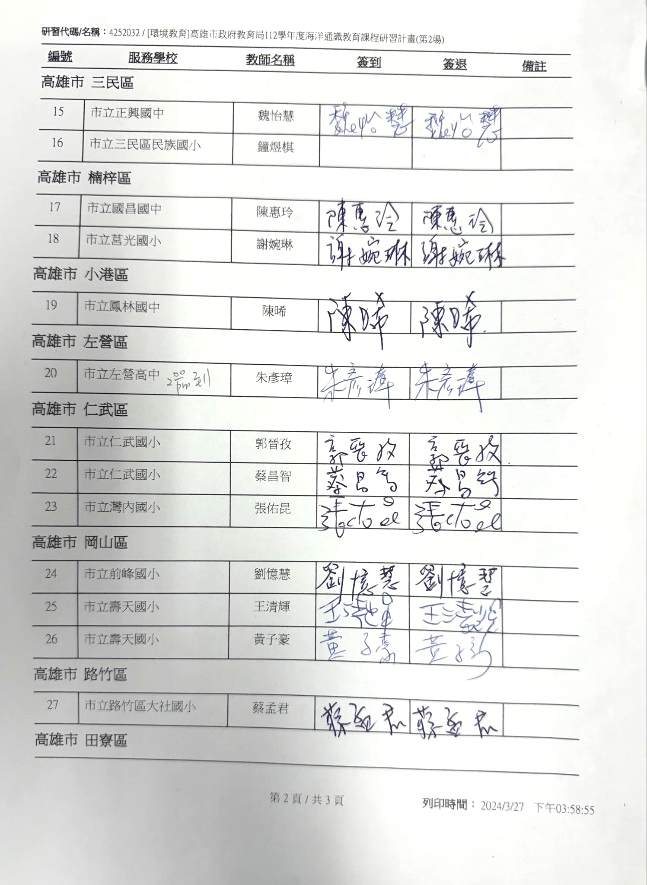 研習代碼/名稱：4252032 / [環境教育]高雄市政府教育局112學年度海洋通識教育課程研習計畫(第2場)
編號 服務學校 教師名稱 簽到 簽退 備註
高雄市 三民區
15 市立正興國中 魏怡慧
16 市立三民區民族國小 鐘煜棋
高雄市 楠梓區
17 市立國昌國中 陳惠玲 陳惠玲 陳惠玲
18 市立莒光國小 謝婉琳 謝婉琳 謝婉琳
高雄市 小港區
19 市立鳳林國中 陳唏 陳唏 陳唏
高雄市 左營區
20 市立左營高中 2:00 pm 到 朱彥璋 朱彥璋 朱彥璋
高雄市 仁武區
21 市立仁武國小 郭晉孜 郭晉孜 郭晉孜
22 市立仁武國小 蔡昌智 蔡昌智 蔡昌智
23 市立灣內國小 張佑昆
高雄市 岡山區
24 市立前峰國小 劉憶慧 劉憶慧 劉憶慧
25 市立壽天國小 王清輝
26 市立壽天國小 黃子豪 黃子豪 黃子豪
高雄市 路竹區
27 市立路竹區大社國小 蔡孟君 蔡孟君 蔡孟君
高雄市 田寮區
第 2 頁 / 共 3 頁
列印時間： 2024/3/27 下午03:58:55